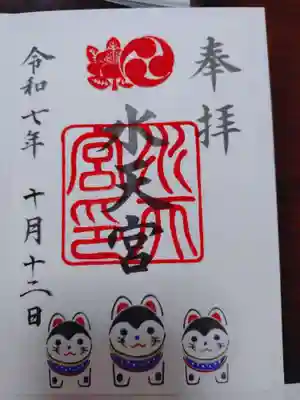 奉拝
水天宮
水天宮印
令和七年 十月十二日